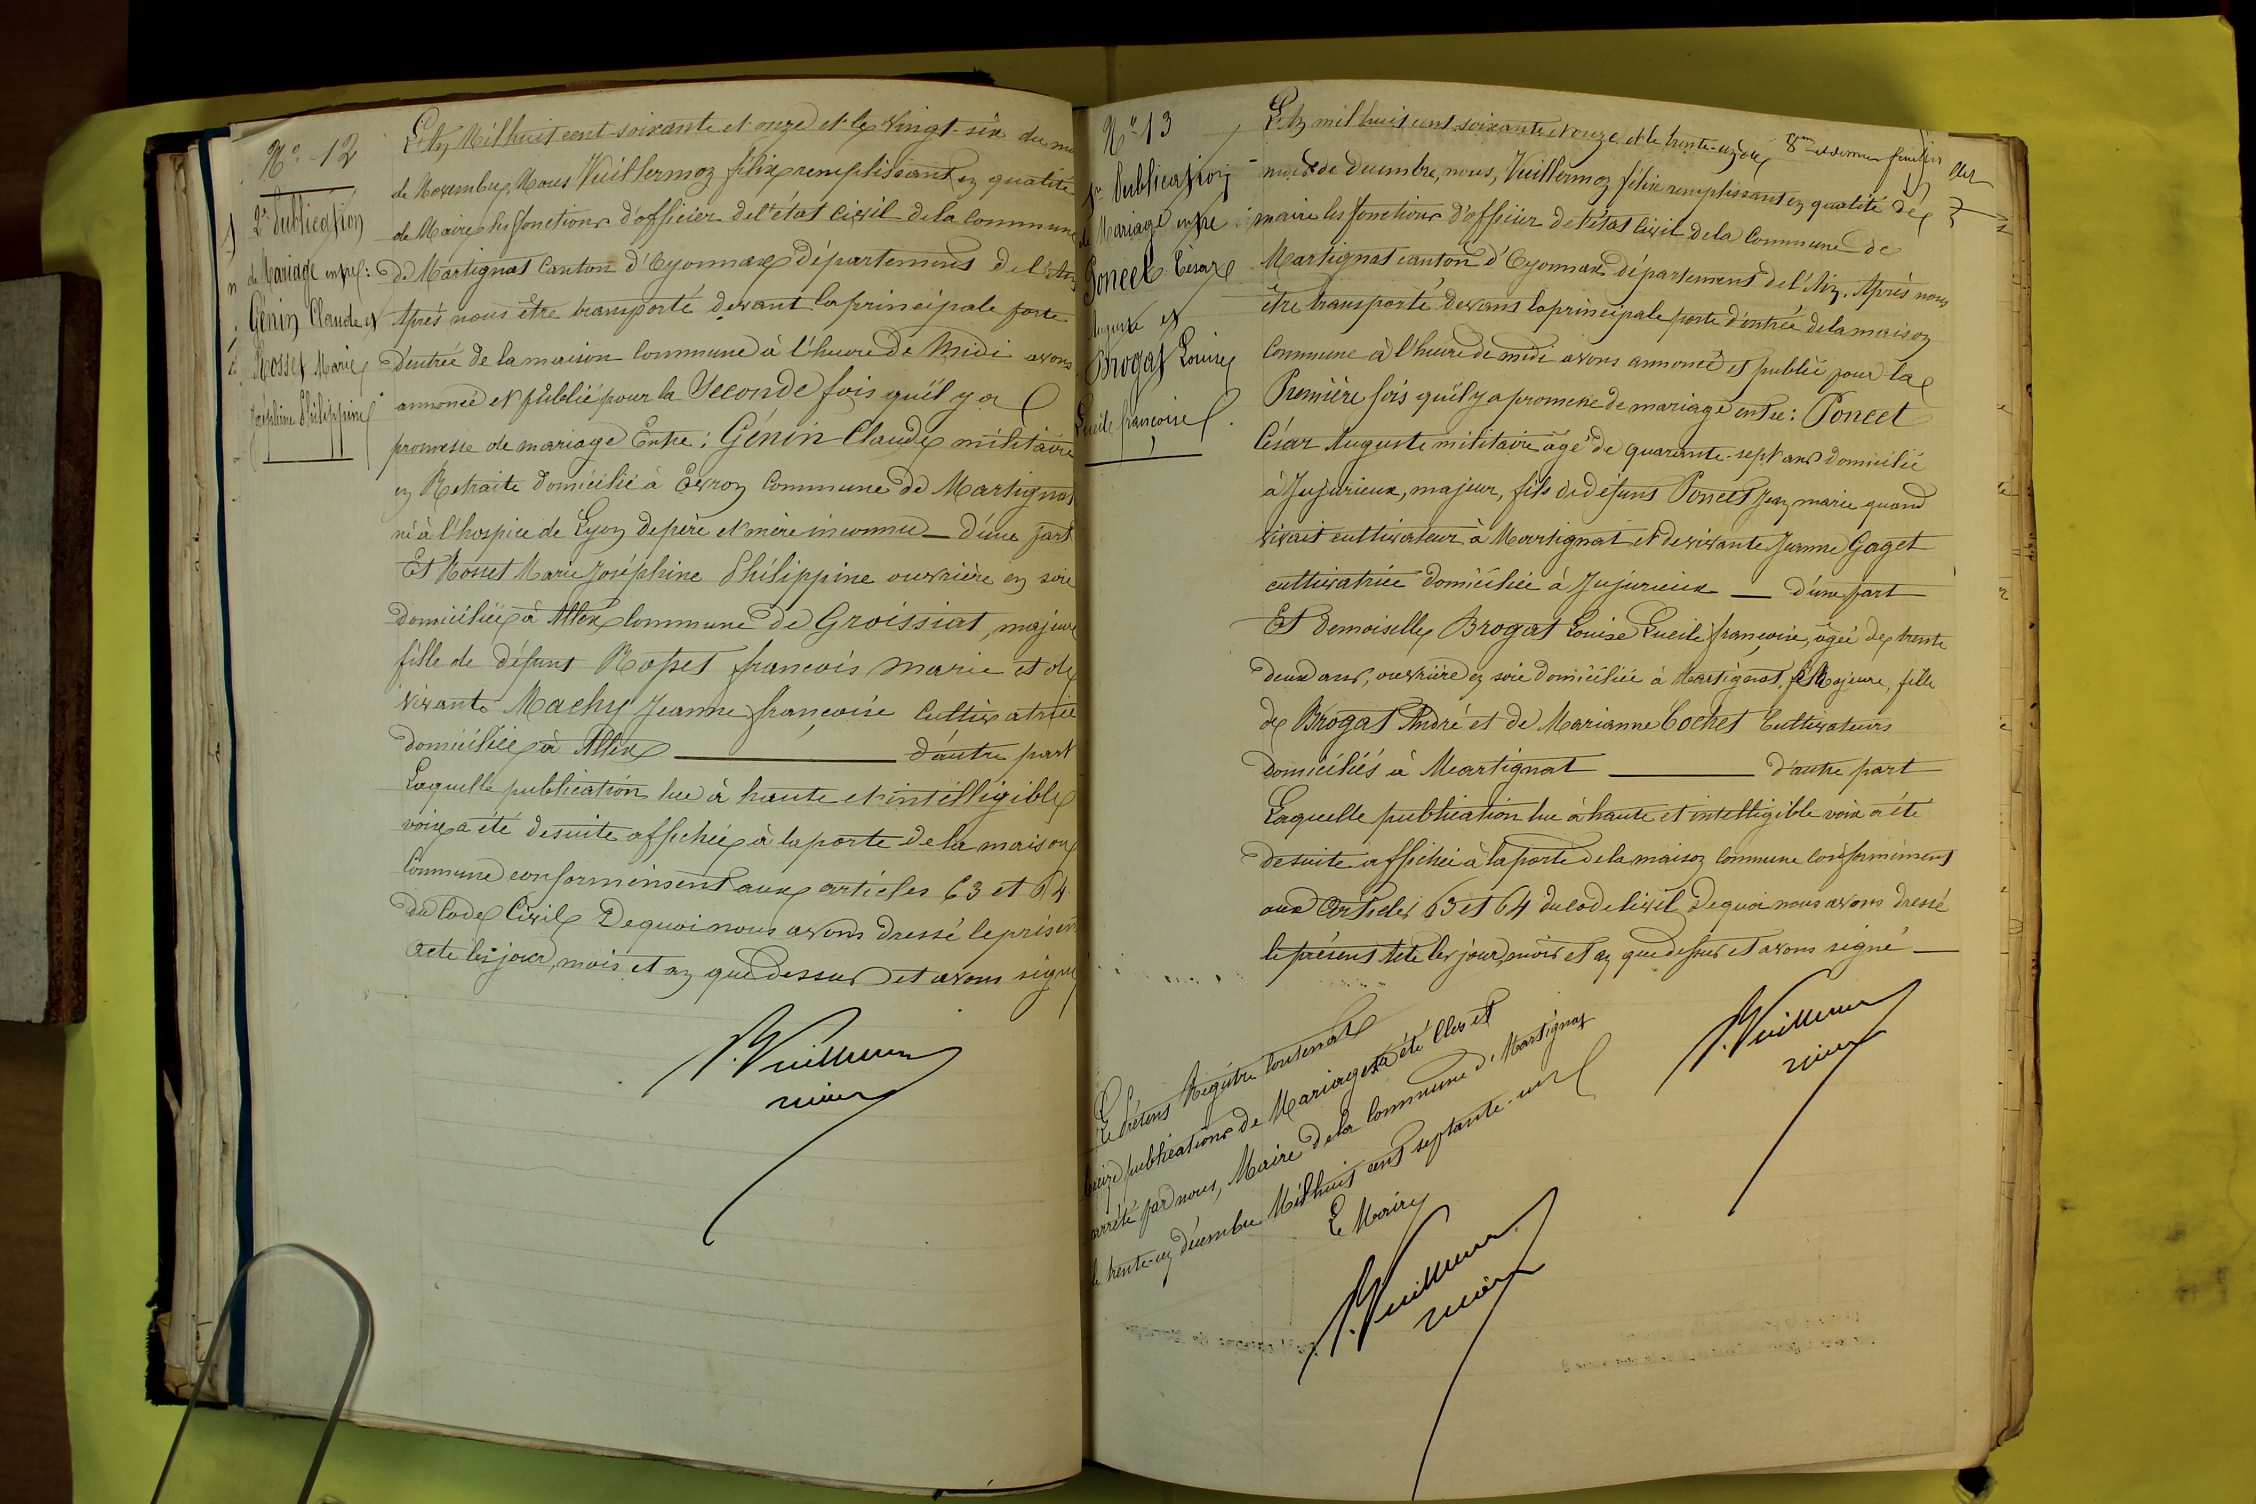 No 12
2e Publication
de Mariage entre :
Génin Claude et
Rosset Marie
Joséphine Philippine
L'An Mil huit cent soixante et onze et le vingt-six du mois
de Novembre, Nous Vuillermoz félix remplissant en qualité
de Maire les fonctions d'officier de l'état Civil de la Commune
de Martignat Canton d'Oyonnax département de l'Ain
Après nous être transporté devant la principale porte
d'entrée de la maison Commune à l'heure de Midi avons
annoncé et publié pour la Seconde fois qu'il y a
promesse de mariage Entre : Génin Claude militaire
en Retraite domicilié à Evron Commune de Martignat
né à l'hospice de Lyon de père et mère inconnu — d'une part
Et Rosset Marie Joséphine Philippine ouvrière en soie
domiciliée à Alex Commune de Groissiat, majeure
fille de défunt Rosset françois marie et de
vivante Machy Jeanne françoise Cultivatrice
domiciliée à Alex — d'autre part
Laquelle publication lue à haute et intelligible
voix a été de suite affichée à la porte de la maison
Commune conformément aux articles 63 et 64
du Code Civil De quoi nous avons dressé le présent
acte les jour, mois et an que dessus et avons signé
f. Vuillermoz
maire
No 13
1re Publication
de Mariage entre
Poncet César
Auguste et
Brogat Louise
Lucile françoise
8me et dernier feuillet
L'An mil huit cent soixante et onze et le trente-un du
mois de décembre, nous, Vuillermoz félix remplissant en qualité de
maire les fonctions d'officier de l'état Civil de la Commune de
Martignat canton d'Oyonnax département de l'Ain. Après nous
être transporté devant la principale porte d'entrée de la maison
Commune à l'heure de midi avons annoncé et publié pour la
Première fois qu'il y a promesse de mariage entre : Poncet
César Auguste militaire âgé de quarante-sept ans domicilié
à Jujurieux, majeur, fils de défunt Poncet Jean marie quand
vivait cultivateur à Martignat et de vivante Jeanne Gaget
cultivatrice domiciliée à Jujurieux — d'une part
Et demoiselle Brogat Louise Lucile françoise, âgée de trente
deux ans, ouvrière en soie domiciliée à Martignat, Majeure, fille
de Brogat André et de Marianne Cochet Cultivateurs
domiciliés à Martignat — d'autre part
Laquelle publication lue à haute et intelligible voix a été
de suite affichée à la porte de la maison Commune conformément
aux Articles 63 et 64 du Code Civil De quoi nous avons dressé
le présent Acte les jour, mois et an que dessus et avons signé —
f. Vuillermoz
maire
Le Présent Régistre Contenant
treize publications de Mariages a été Clos et
arrêté par nous, Maire de la Commune de Martignat
le trente-un décembre Mil huit cent septante-un
Le Maire
f. Vuillermoz
maire